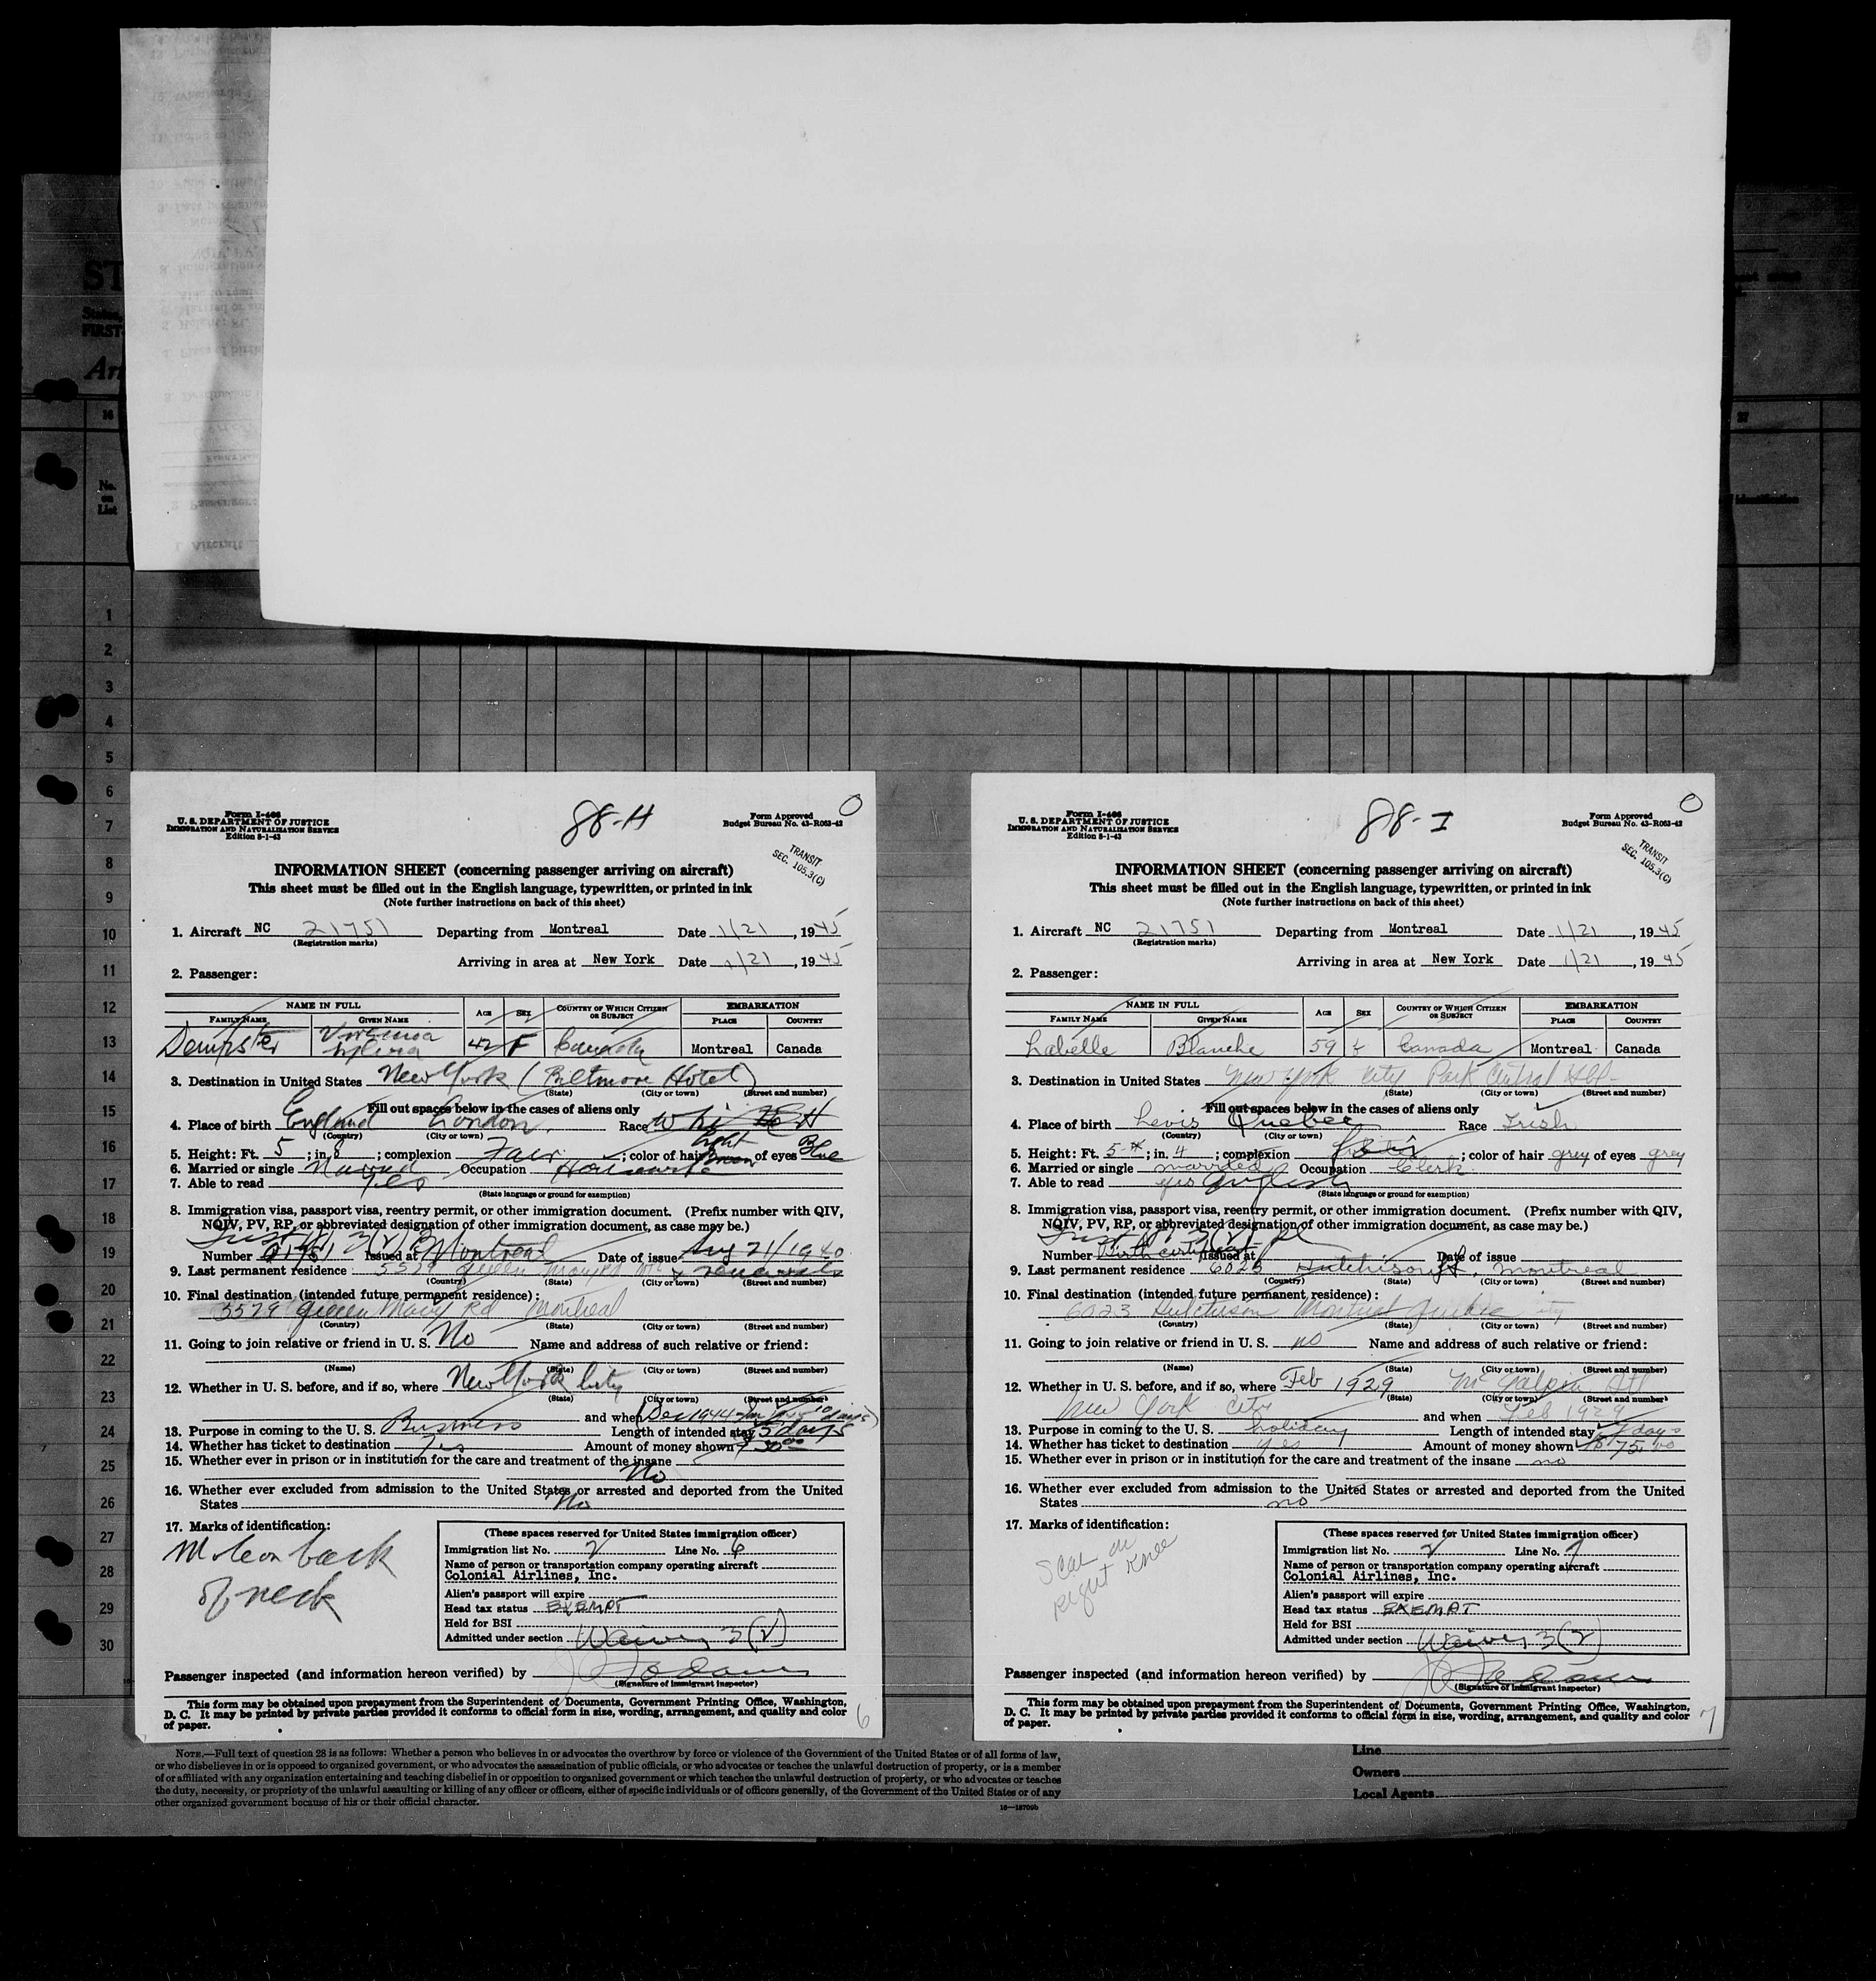 88-H
Form I-466
U. S. DEPARTMENT OF JUSTICE
IMMIGRATION AND NATURALIZATION SERVICE
Edition 8-1-43
Form Approved
Budget Bureau No. 43-R063-42
TRANSIT
SEC. 105.3(C)
INFORMATION SHEET (concerning passenger arriving on aircraft)
This sheet must be filled out in the English language, typewritten, or printed in ink
(Note further instructions on back of this sheet)
1. Aircraft NC 21751 Departing from Montreal Date 1/21, 1945
(Registration marks)
Arriving in area at New York Date 1/21, 1945
2. Passenger:
NAME IN FULL AGE SEX COUNTRY OF WHICH CITIZEN OR SUBJECT EMBARKATION
FAMILY NAME GIVEN NAME PLACE COUNTRY
Dempster 42 F Canada Montreal Canada
3. Destination in United States New York (Biltmore Hotel)
(State) (City or town) (Street and number)
Fill out spaces below in the cases of aliens only
4. Place of birth England London. Race
(Country) (City or town)
5. Height: Ft. 5; in. 8; complexion Fair; color of hair light of eyes Blue
6. Married or single Married Occupation Housewife
7. Able to read Yes
(State language or ground for exemption)
8. Immigration visa, passport visa, reentry permit, or other immigration document. (Prefix number with QIV,
NQIV, PV, RP, or abbreviated designation of other immigration document, as case may be.)
Number Issued at Montreal Date of issue Aug 21/1940
9. Last permanent residence 5529 Queen Mary Rd renewals
(Country) (State) (City or town) (Street and number)
10. Final destination (intended future permanent residence):
5529 Queen Mary Rd Montreal
(Country) (State) (City or town) (Street and number)
11. Going to join relative or friend in U. S. No Name and address of such relative or friend:
(Name) (State) (City or town) (Street and number)
12. Whether in U. S. before, and if so, where New York City
(State) (City or town) (Street and number)
and when Dec 1944 10 days)
13. Purpose in coming to the U. S. Business Length of intended stay 5 days
14. Whether has ticket to destination Yes Amount of money shown 30.00
15. Whether ever in prison or in institution for the care and treatment of the insane No
16. Whether ever excluded from admission to the United States or arrested and deported from the United
States No
17. Marks of identification:
Mole on back
of neck
(These spaces reserved for United States immigration officer)
Immigration list No. 2 Line No. 6
Name of person or transportation company operating aircraft
Colonial Airlines, Inc.
Alien's passport will expire
Head tax status EXEMPT
Held for BSI
Admitted under section Waiver 3(2)
Passenger inspected (and information hereon verified) by
(Signature of immigrant inspector)
This form may be obtained upon prepayment from the Superintendent of Documents, Government Printing Office, Washington,
D. C. It may be printed by private parties provided it conforms to official form in size, wording, arrangement, and quality and color
of paper.
6
88-I
Form I-466
U. S. DEPARTMENT OF JUSTICE
IMMIGRATION AND NATURALIZATION SERVICE
Edition 8-1-43
Form Approved
Budget Bureau No. 43-R063-42
TRANSIT
SEC. 105.3(C)
INFORMATION SHEET (concerning passenger arriving on aircraft)
This sheet must be filled out in the English language, typewritten, or printed in ink
(Note further instructions on back of this sheet)
1. Aircraft NC 21751 Departing from Montreal Date 1/21, 1945
(Registration marks)
Arriving in area at New York Date 1/21, 1945
2. Passenger:
NAME IN FULL AGE SEX COUNTRY OF WHICH CITIZEN OR SUBJECT EMBARKATION
FAMILY NAME GIVEN NAME PLACE COUNTRY
Labelle Blanche 59 f Canada Montreal Canada
3. Destination in United States New York City Park Central Htl-
(State) (City or town) (Street and number)
Fill out spaces below in the cases of aliens only
4. Place of birth Levis Quebec Race Irish
(Country) (City or town)
5. Height: Ft. 5; in. 4; complexion; color of hair grey of eyes grey
6. Married or single married Occupation Clerk
7. Able to read yes English
(State language or ground for exemption)
8. Immigration visa, passport visa, reentry permit, or other immigration document. (Prefix number with QIV,
NQIV, PV, RP, or abbreviated designation of other immigration document, as case may be.)
Number Birth certificate Issued at Date of issue
9. Last permanent residence 6023 Hutchison St, Montreal
(Country) (State) (City or town) (Street and number)
10. Final destination (intended future permanent residence):
6023 Hutchison Montreal Quebec city
(Country) (State) (City or town) (Street and number)
11. Going to join relative or friend in U. S. no Name and address of such relative or friend:
(Name) (State) (City or town) (Street and number)
12. Whether in U. S. before, and if so, where Feb 1929 McAlpin Htl
(State) (City or town) (Street and number)
New York City and when Feb 1929
13. Purpose in coming to the U. S. holiday Length of intended stay 7 days
14. Whether has ticket to destination yes Amount of money shown 75.00
15. Whether ever in prison or in institution for the care and treatment of the insane no
16. Whether ever excluded from admission to the United States or arrested and deported from the United
States no
17. Marks of identification:
Scar on
right knee
(These spaces reserved for United States immigration officer)
Immigration list No. 2 Line No. 7
Name of person or transportation company operating aircraft
Colonial Airlines, Inc.
Alien's passport will expire
Head tax status EXEMPT
Held for BSI
Admitted under section Waiver 3(2)
Passenger inspected (and information hereon verified) by
(Signature of immigrant inspector)
This form may be obtained upon prepayment from the Superintendent of Documents, Government Printing Office, Washington,
D. C. It may be printed by private parties provided it conforms to official form in size, wording, arrangement, and quality and color
of paper.
7
No.
on
List
1
2
3
4
5
6
7
8
9
10
11
12
13
14
15
16
17
18
19
20
21
22
23
24
25
26
27
28
29
30
NOTE.—Full text of question 28 is as follows: Whether a person who believes in or advocates the overthrow by force or violence of the Government of the United States or of all forms of law,
or who disbelieves in or is opposed to organized government, or who advocates the assassination of public officials, or who advocates or teaches the unlawful destruction of property, or is a member
of or affiliated with any organization entertaining and teaching disbelief in or opposition to organized government or which teaches the unlawful destruction of property, or who advocates or teaches
the duty, necessity, or propriety of the unlawful assaulting or killing of any officer or officers, either of specific individuals or of officers generally, of the Government of the United States or of any
other organized government because of his or their official character.
Line
Owners
Local Agents